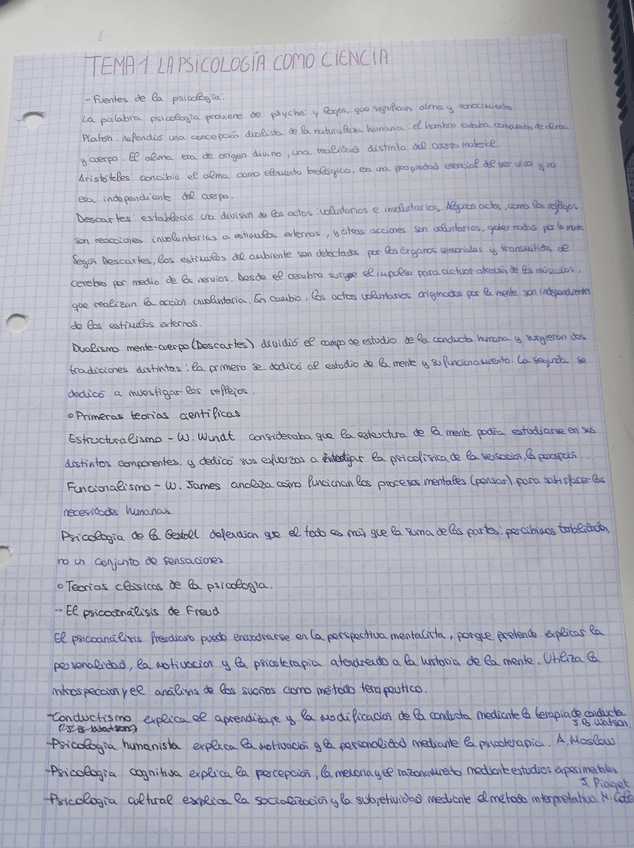 TEMA 1 LA PSICOLOGÍA COMO CIENCIA
- Fuentes de la psicología.
La palabra psicología proviene de psyche y logos, que significan alma y conocimiento.
Platón: defendió una concepción dualista de la naturaleza humana: el hombre estaba compuesto de alma
y cuerpo. El alma era de origen divino, una realidad distinta del cuerpo material.
Aristóteles: concibió el alma como elemento biológico, es una propiedad esencial del ser vivo y no
era independiente del cuerpo.
Descartes: estableció una división de los actos voluntarios e involuntarios. Algunos actos, como los reflejos
son reacciones involuntarias a estímulos externos, y otras acciones son voluntarias, gobernadas por la mente.
Según Descartes, los estímulos del ambiente son detectados por los órganos sensoriales y transmitidos al
cerebro por medio de los nervios. Desde el cerebro surge el impulso para actuar a través de los músculos,
que realizan la acción involuntaria. En cambio, los actos voluntarios originados por la mente son independientes
de los estímulos externos.
Dualismo mente-cuerpo (Descartes) dividió el campo de estudio de la conducta humana y surgieron dos
tradiciones distintas: la primera se dedicó al estudio de la mente y su funcionamiento. La segunda se
dedicó a investigar los reflejos.
o Primeras teorías científicas
Estructuralismo - W. Wundt consideraba que la estructura de la mente podía estudiarse en sus
distintos componentes, y dedicó sus esfuerzos a investigar la psicofísica de la sensación, la percepción...
Funcionalismo - W. James analiza cómo funcionan los procesos mentales (pensar) para satisfacer las
necesidades humanas.
Psicología de la Gestalt defendían que el todo es más que la suma de las partes: percibimos totalidades,
no un conjunto de sensaciones.
o Teorías clásicas de la psicología.
- El psicoanálisis de Freud
El psicoanálisis freudiano puede encuadrarse en la perspectiva mentalista, porque pretende explicar la
personalidad, la motivación y la psicoterapia atendiendo a la historia de la mente. Utiliza la
introspección y el análisis de los sueños como método terapéutico.
- Conductismo explica el aprendizaje y la modificación de la conducta mediante la terapia de conducta
(J.B. Watson) J.B Watson.
- Psicología humanista explica la motivación y la personalidad mediante la psicoterapia. A. Maslow
- Psicología cognitiva explica la percepción, la memoria y el razonamiento mediante estudios experimentales
J. Piaget
- Psicología cultural explica la socialización y la subjetividad mediante el método interpretativo. M.